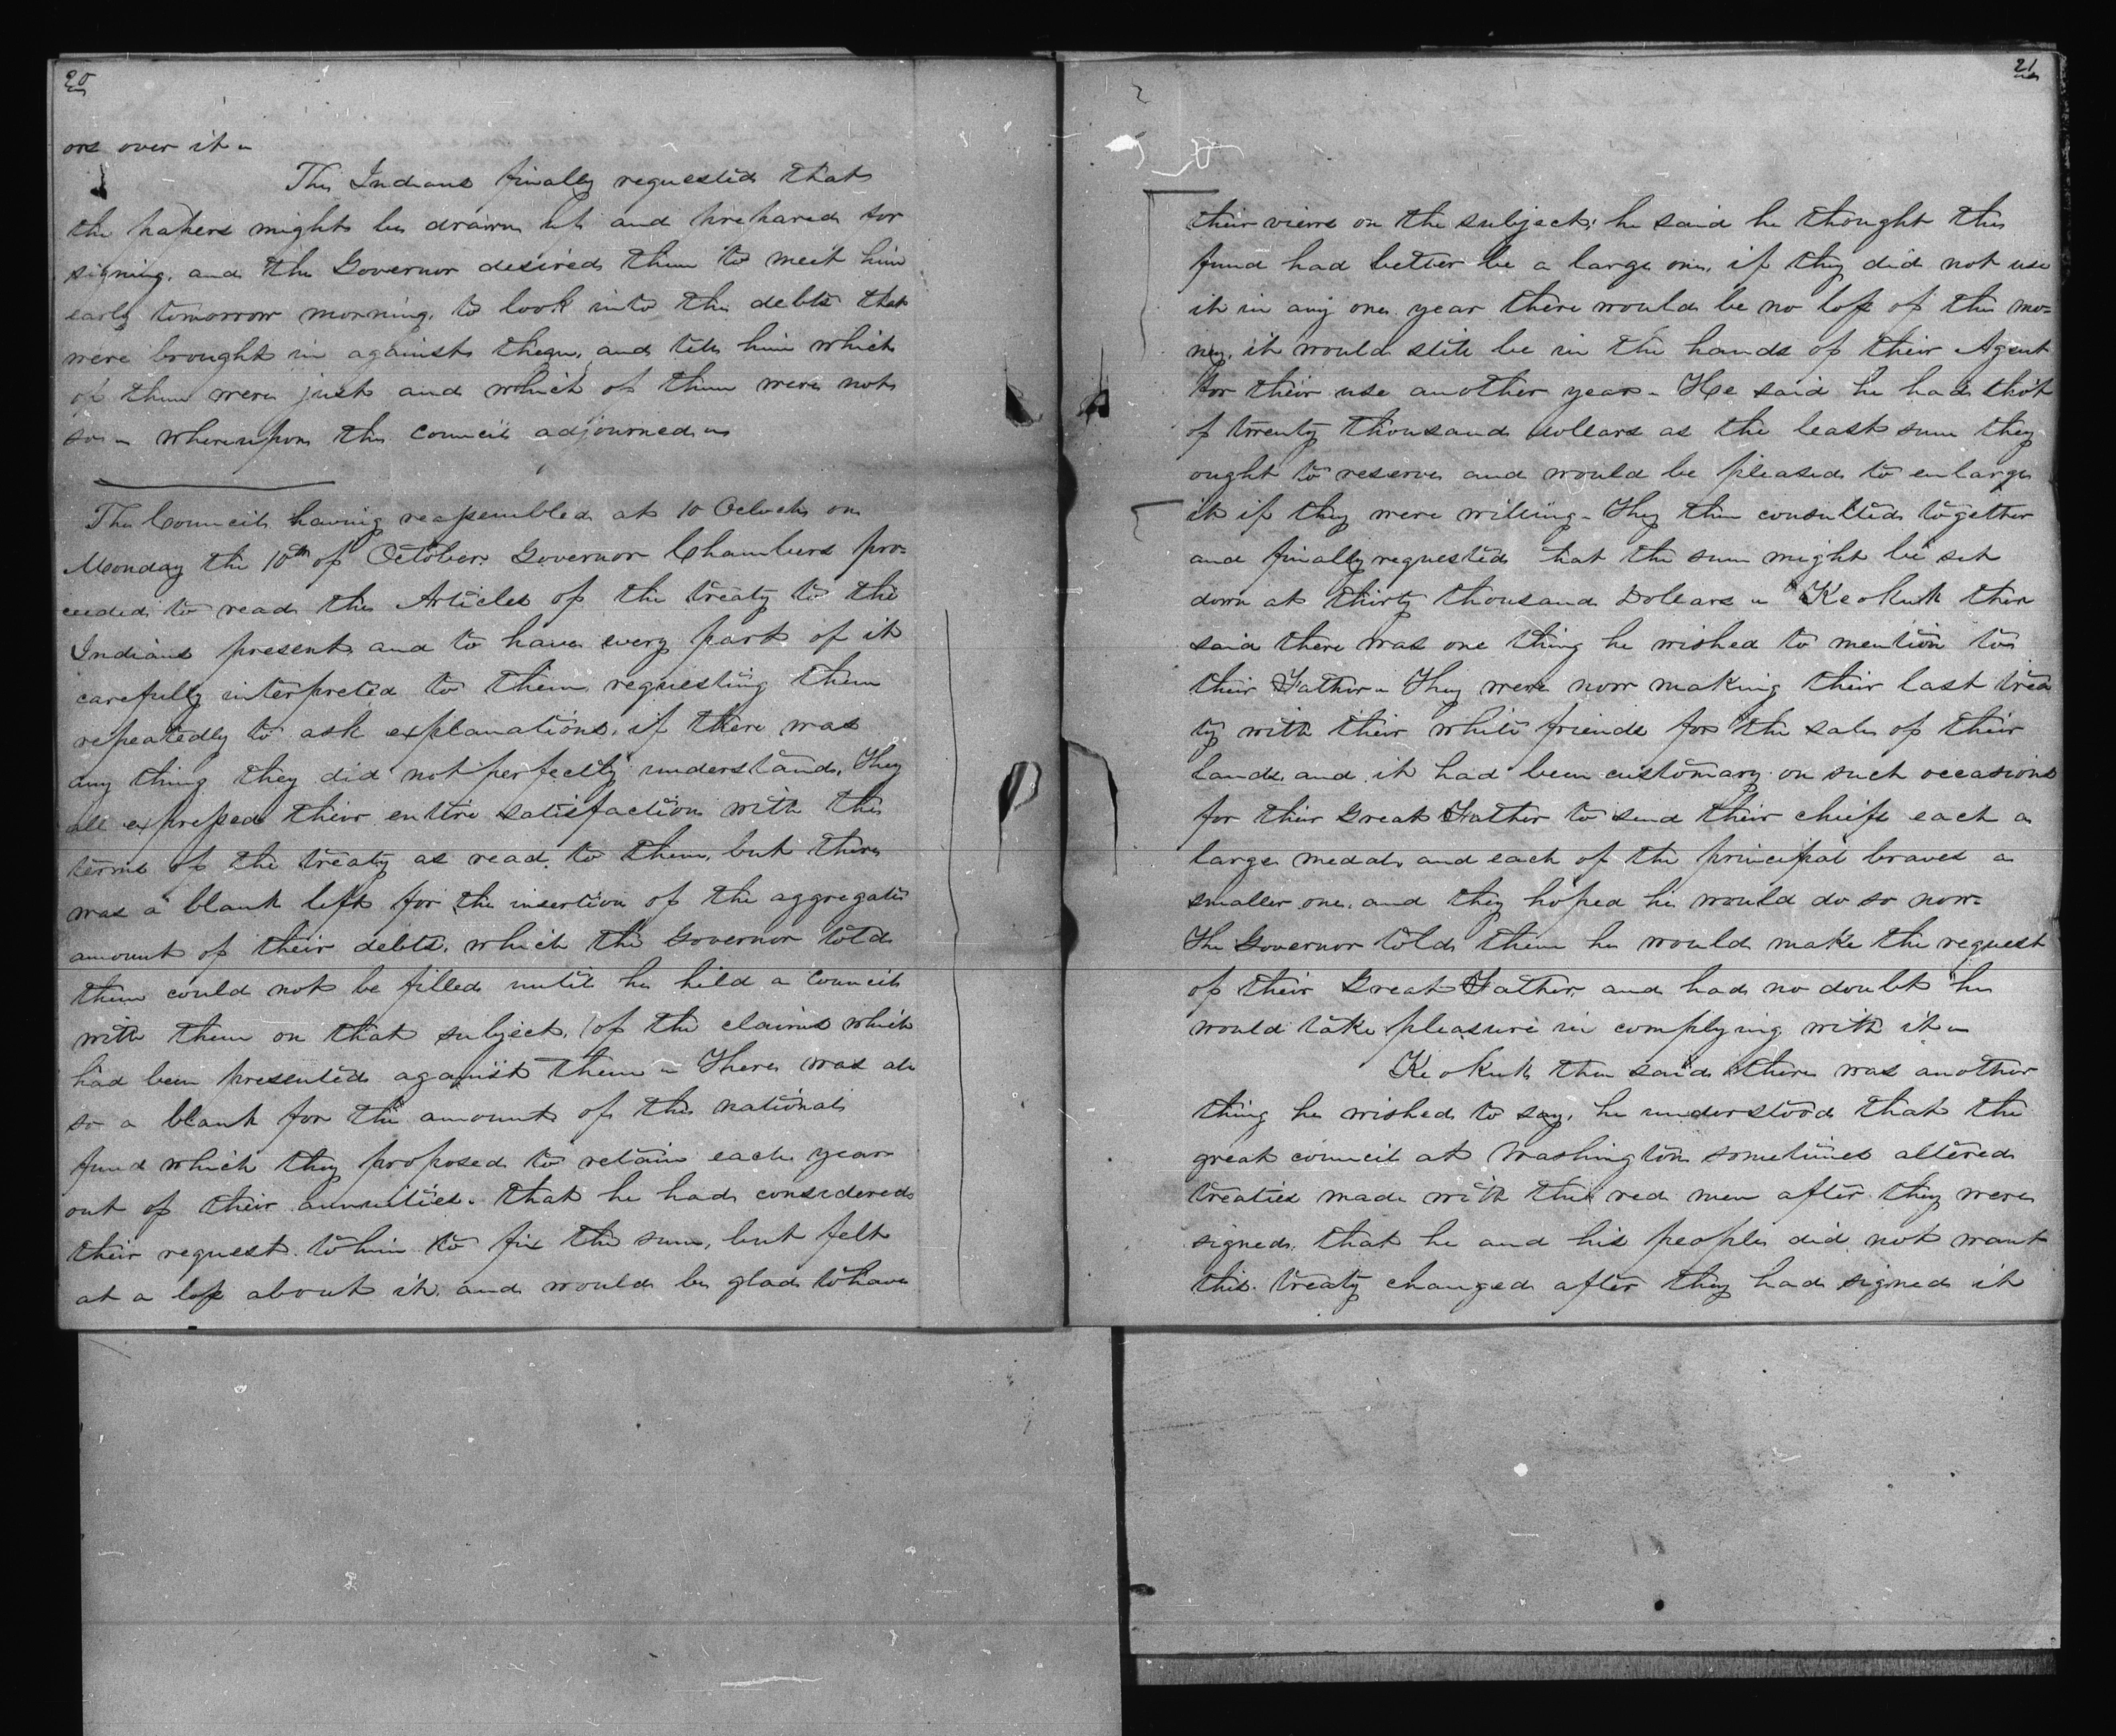 20
ors over it –
The Indians finally requested that
the papers might be drawn up and prepared for
signing, and the Governor desired them to meet him
early tomorrow morning, to look into the debts that
were brought in against them, and tell him which
of them were just and which of them were not
so – whereupon the council adjourned –
The Council having reassembled at 10 Oclock on
Monday the 10th of October. Governor Chambers pro=
ceeded to read the Articles of the treaty to the
Indians present, and to have every part of it
carefully interpreted to them requesting them
repeatedly to ask explanations, if there was
any thing they did not perfectly understand. They
all expressed their entire satisfaction with the
terms of the treaty as read to them, but there
was a blank left for the insertion of the aggregate
amount of their debts, which the Governor told
them could not be filled until he held a council
with them on that subject, of the claims which
had been presented against them – There was al
so a blank for the amount of the national
fund which they proposed to retain each year
out of their annuities. that he had considered
their request to him to fix the sum, but felt
at a loss about it, and would be glad to have
21
their views on the subject; he said he thought the
fund had better be a large one, if they did not use
it in any one year there would be no loss of the mo=
ney, it would still be in the hands of their Agent
for their use another year – He said he had tho't
of twenty thousand dollars as the least sum they
ought to reserve and would be pleased to enlarge
it if they were willing – They then consulted together
and finally requested that the sum might be set
down at thirty thousand Dollars – Keokuk then
said there was one thing he wished to mention to
their Father – They were now making their last trea
ty with their white friends for the sale of their
lands, and it had been customary on such occasions
for their Great Father to send their chiefs each a
large medal, and each of the principal braves a
smaller one, and they hoped he would do so now.
The Governor told them he would make the request
of their Great Father, and had no doubt he
would take pleasure in complying with it –
Keokuk then said there was another
thing he wished to say, he understood that the
great council at Washington sometimes altered
treaties made with the red men after they were
signed, that he and his people did not want
this treaty changed after they had signed it